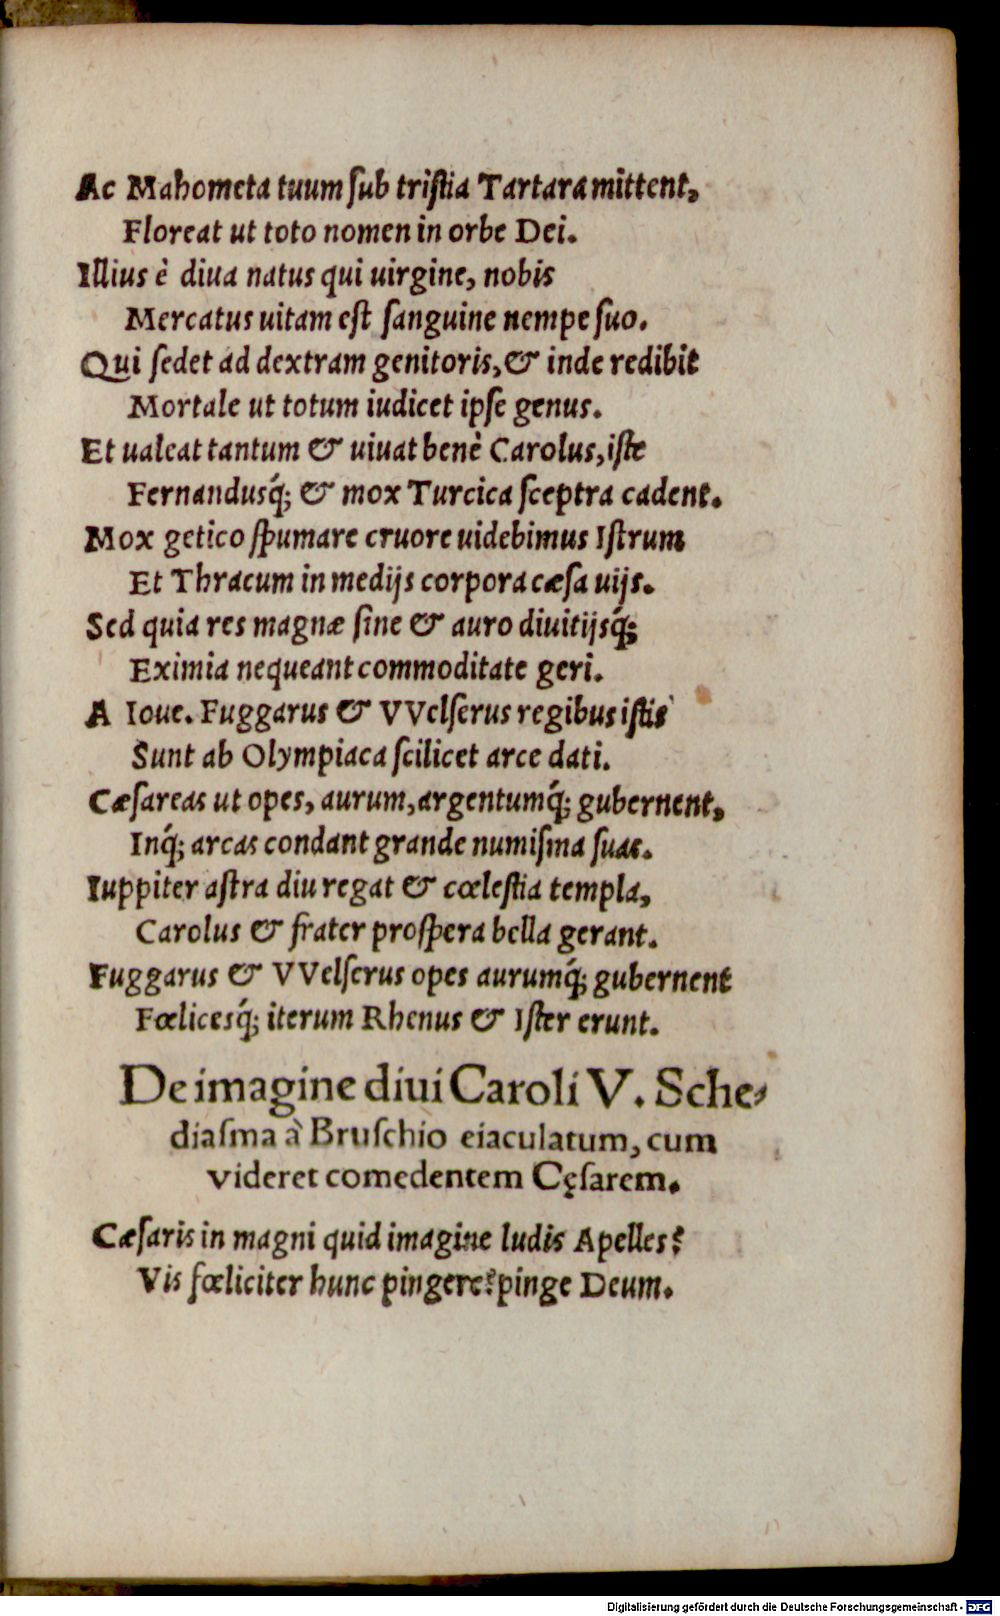 Ac Mahometa tuum ſub triſtia Tartara mittent,
Floreat ut toto nomen in orbe Dei.
Illius è diua natus qui uirgine, nobis
Mercatus uitam eſt ſanguine nempe ſuo.
Qui ſedet ad dextram genitoris, & inde redibit
Mortale ut totum iudicet ipſe genus.
Et ualeat tantum & uiuat benè Carolus, iſte
Fernandusq́; & mox Turcica ſceptra cadent.
Mox getico ſpumare cruore uidebimus Iſtrum
Et Thracum in medijs corpora cæſa uijs.
Sed quia res magnæ ſine & auro diuitijsq́;
Eximia nequeant commoditate geri.
A Ioue. Fuggarus & VVelſerus regibus iſtis
Sunt ab Olympiaca ſcilicet arce dati.
Cæſareas ut opes, aurum, argentumq́; gubernent,
Inq́; arcas condant grande numiſma ſuas.
Iuppiter aſtra diu regat & cœleſtia templa,
Carolus & frater proſpera bella gerant.
Fuggarus & VVelſerus opes aurumq́; gubernent
Fœlicesq́; iterum Rhenus & Iſter erunt.
De imagine diui Caroli V. Sche-
diaſma à Bruſchio eiaculatum, cum
videret comedentem Cęſarem.
Cæſaris in magni quid imagine ludis Apelles?
Vis fœliciter hunc pingere? pinge Deum.
Digitalisierung gefördert durch die Deutsche Forschungsgemeinschaft - DFG